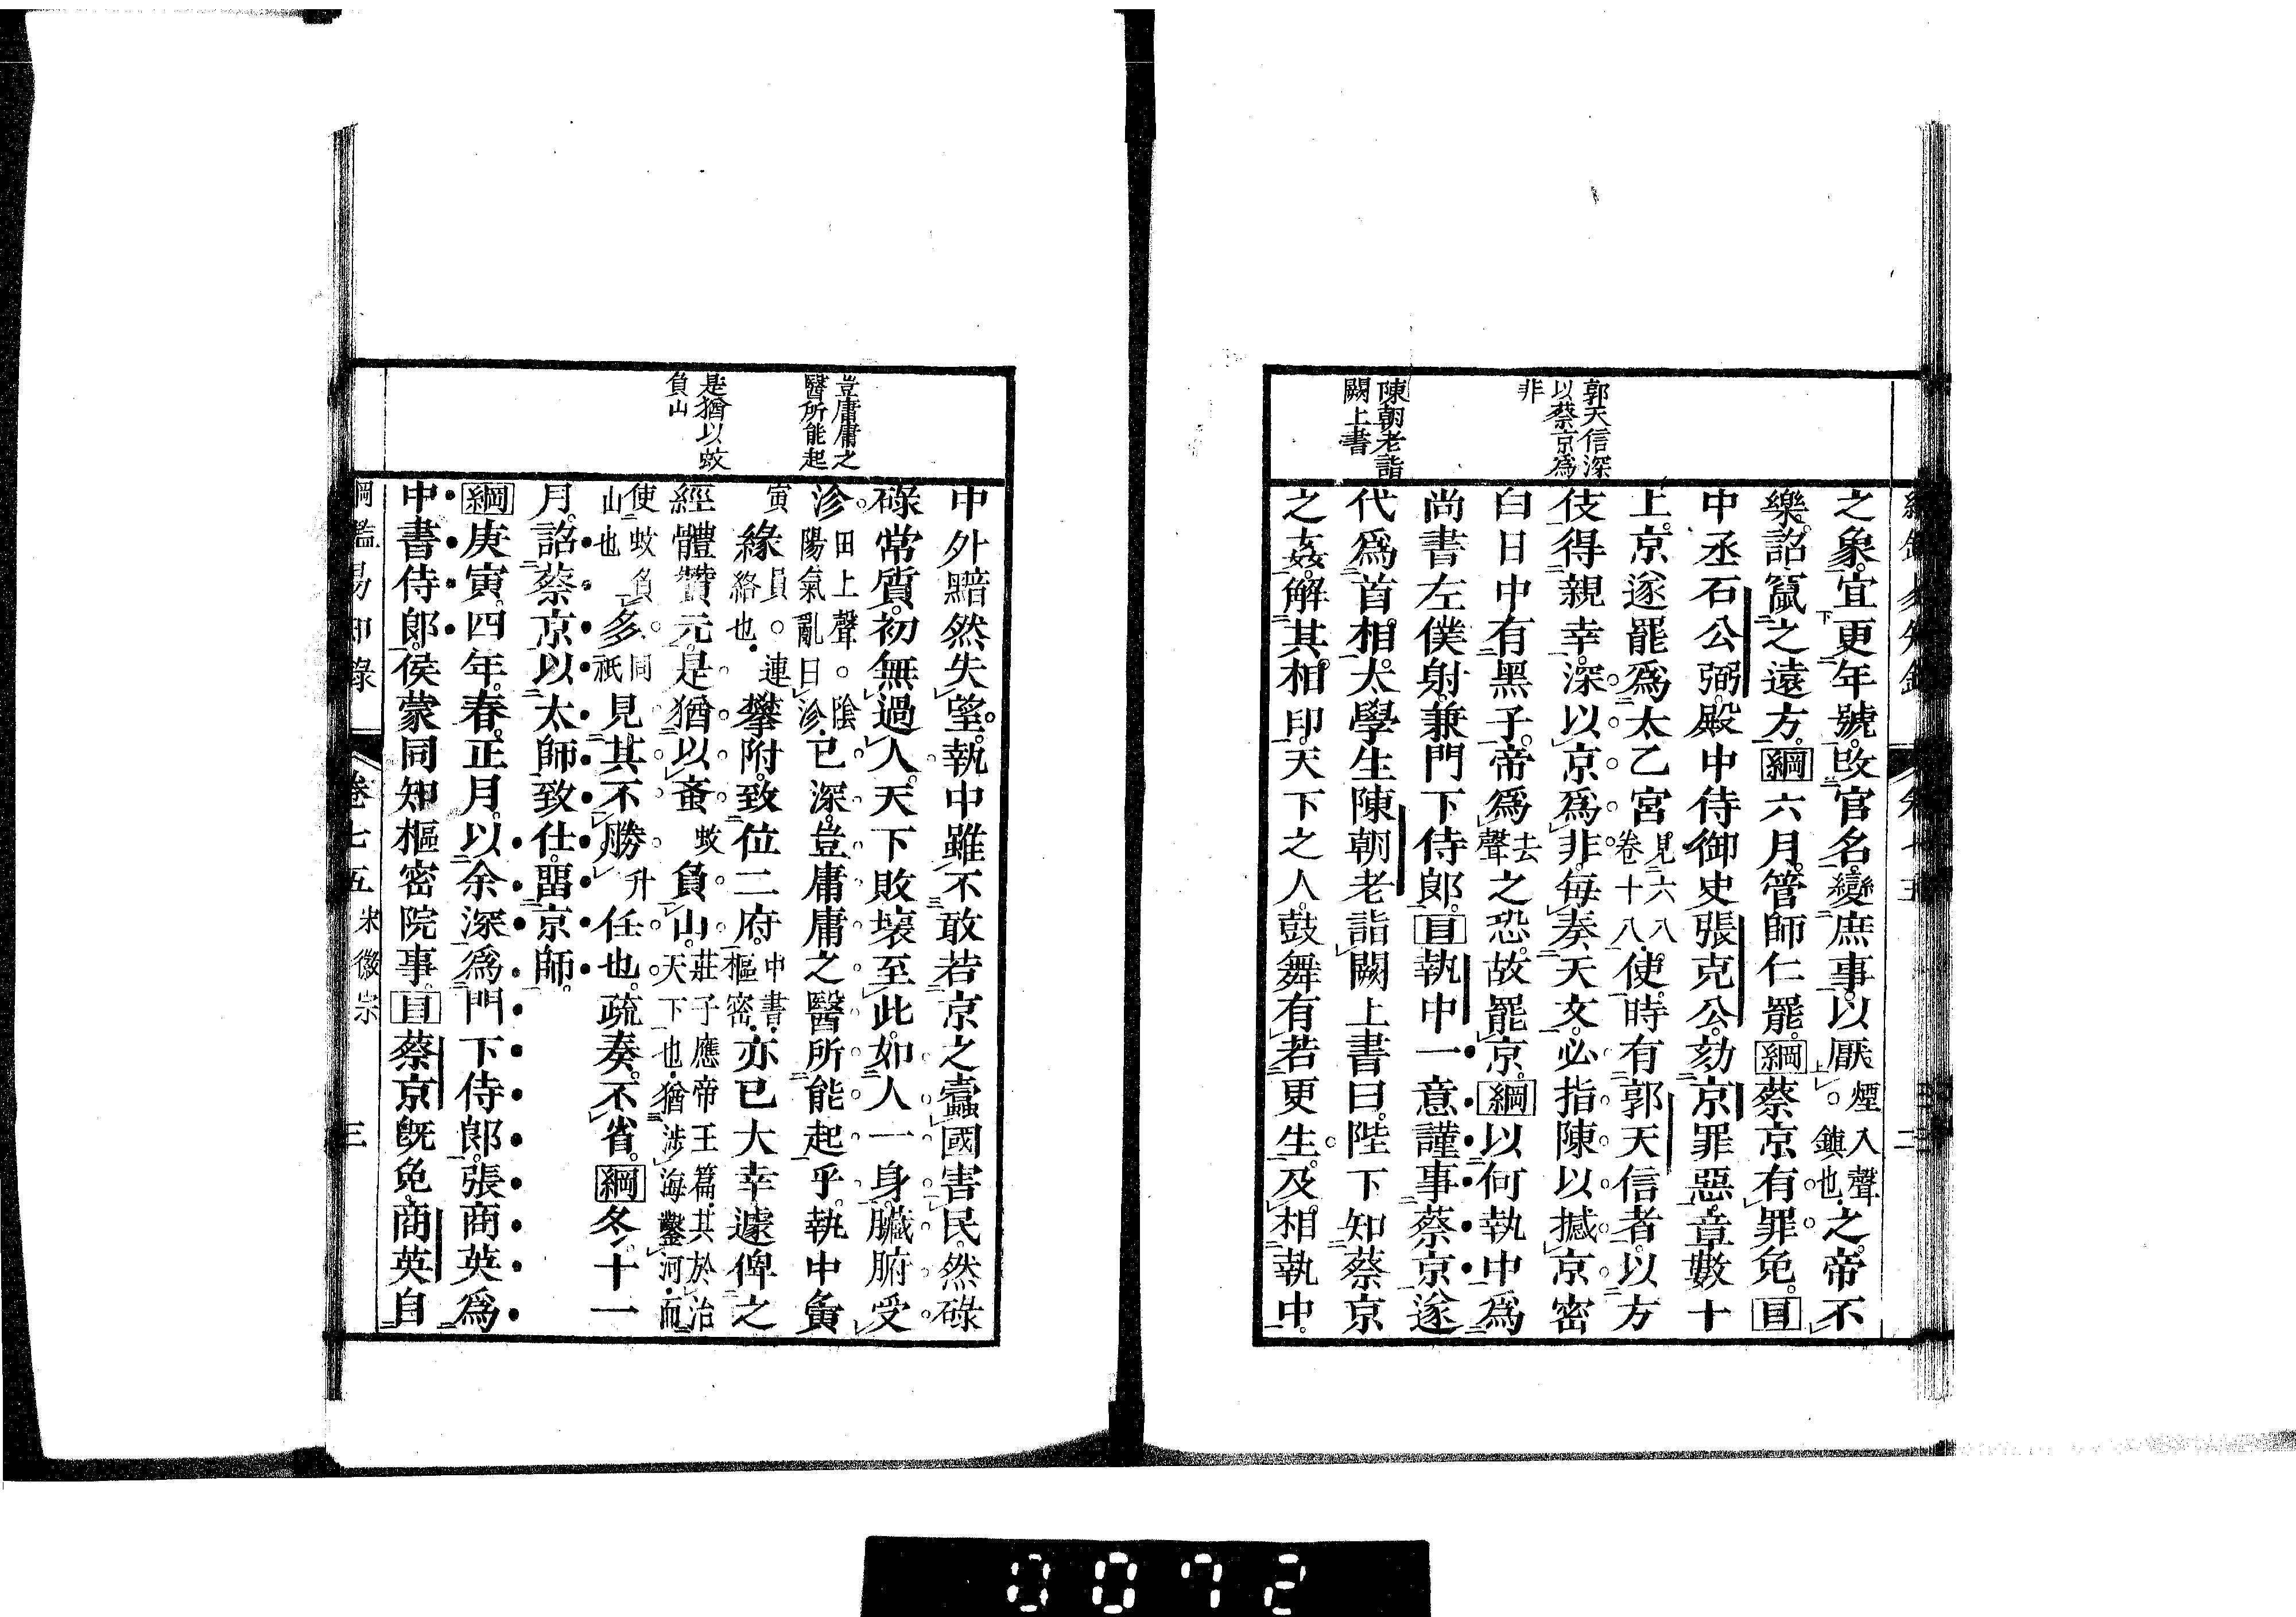 郭天信深
以蔡京爲
非
陳朝老詣
闕上書
之象。宜更年號。改官名。變庶事。以厭煙入聲。鎮也。之。帝不
樂。詔竄之遠方。綱六月。管師仁罷。綱蔡京有罪免。目
中丞石公弼。殿中侍御史張克公。劾京罪惡。章數十
上。京遂罷爲太乙宮見六八卷十八八。使。時有郭天信者。以方
伎得親幸。深以京爲非。每奏天文。必指陳以撼京。密
白日中有黑子。帝爲去聲之恐。故罷京。綱以何執中爲
尚書左僕射。兼門下侍郎。目執中一意謹事蔡京。遂
代爲首相。太學生陳朝老詣闕上書曰。陛下知蔡京
之姦。解其相印。天下之人。鼓舞有若更生。及相執中。
豈庸庸之
醫所能起
是猶以蚊
負山
中外黯然失望。執中雖不敢若京之蠹國害民。然碌
碌常質。初無過人。天下敗壞至此。如人一身。臟腑受
沴田上聲。陰陽氣亂曰沴。已深。豈庸庸之醫所能起乎。執中夤
寅緣員。連絡也。攀附。致位二府。中書樞密。亦已大幸。遽俾之
經體贊元。是猶以蚉蚊負山。莊子應帝王篇。其於治天下也。猶涉海鑿河。而
使蚊負山也多同祇見其不勝升任也。疏奏。不省。綱冬十一
月。詔蔡京以太師致仕。留京師。
綱庚寅。四年。春。正月。以余深爲門下侍郎。張商英爲
中書侍郎。侯蒙同知樞密院事。目蔡京旣免。商英自
綱鑑易知錄 卷七五 宋徽宗 三
0072